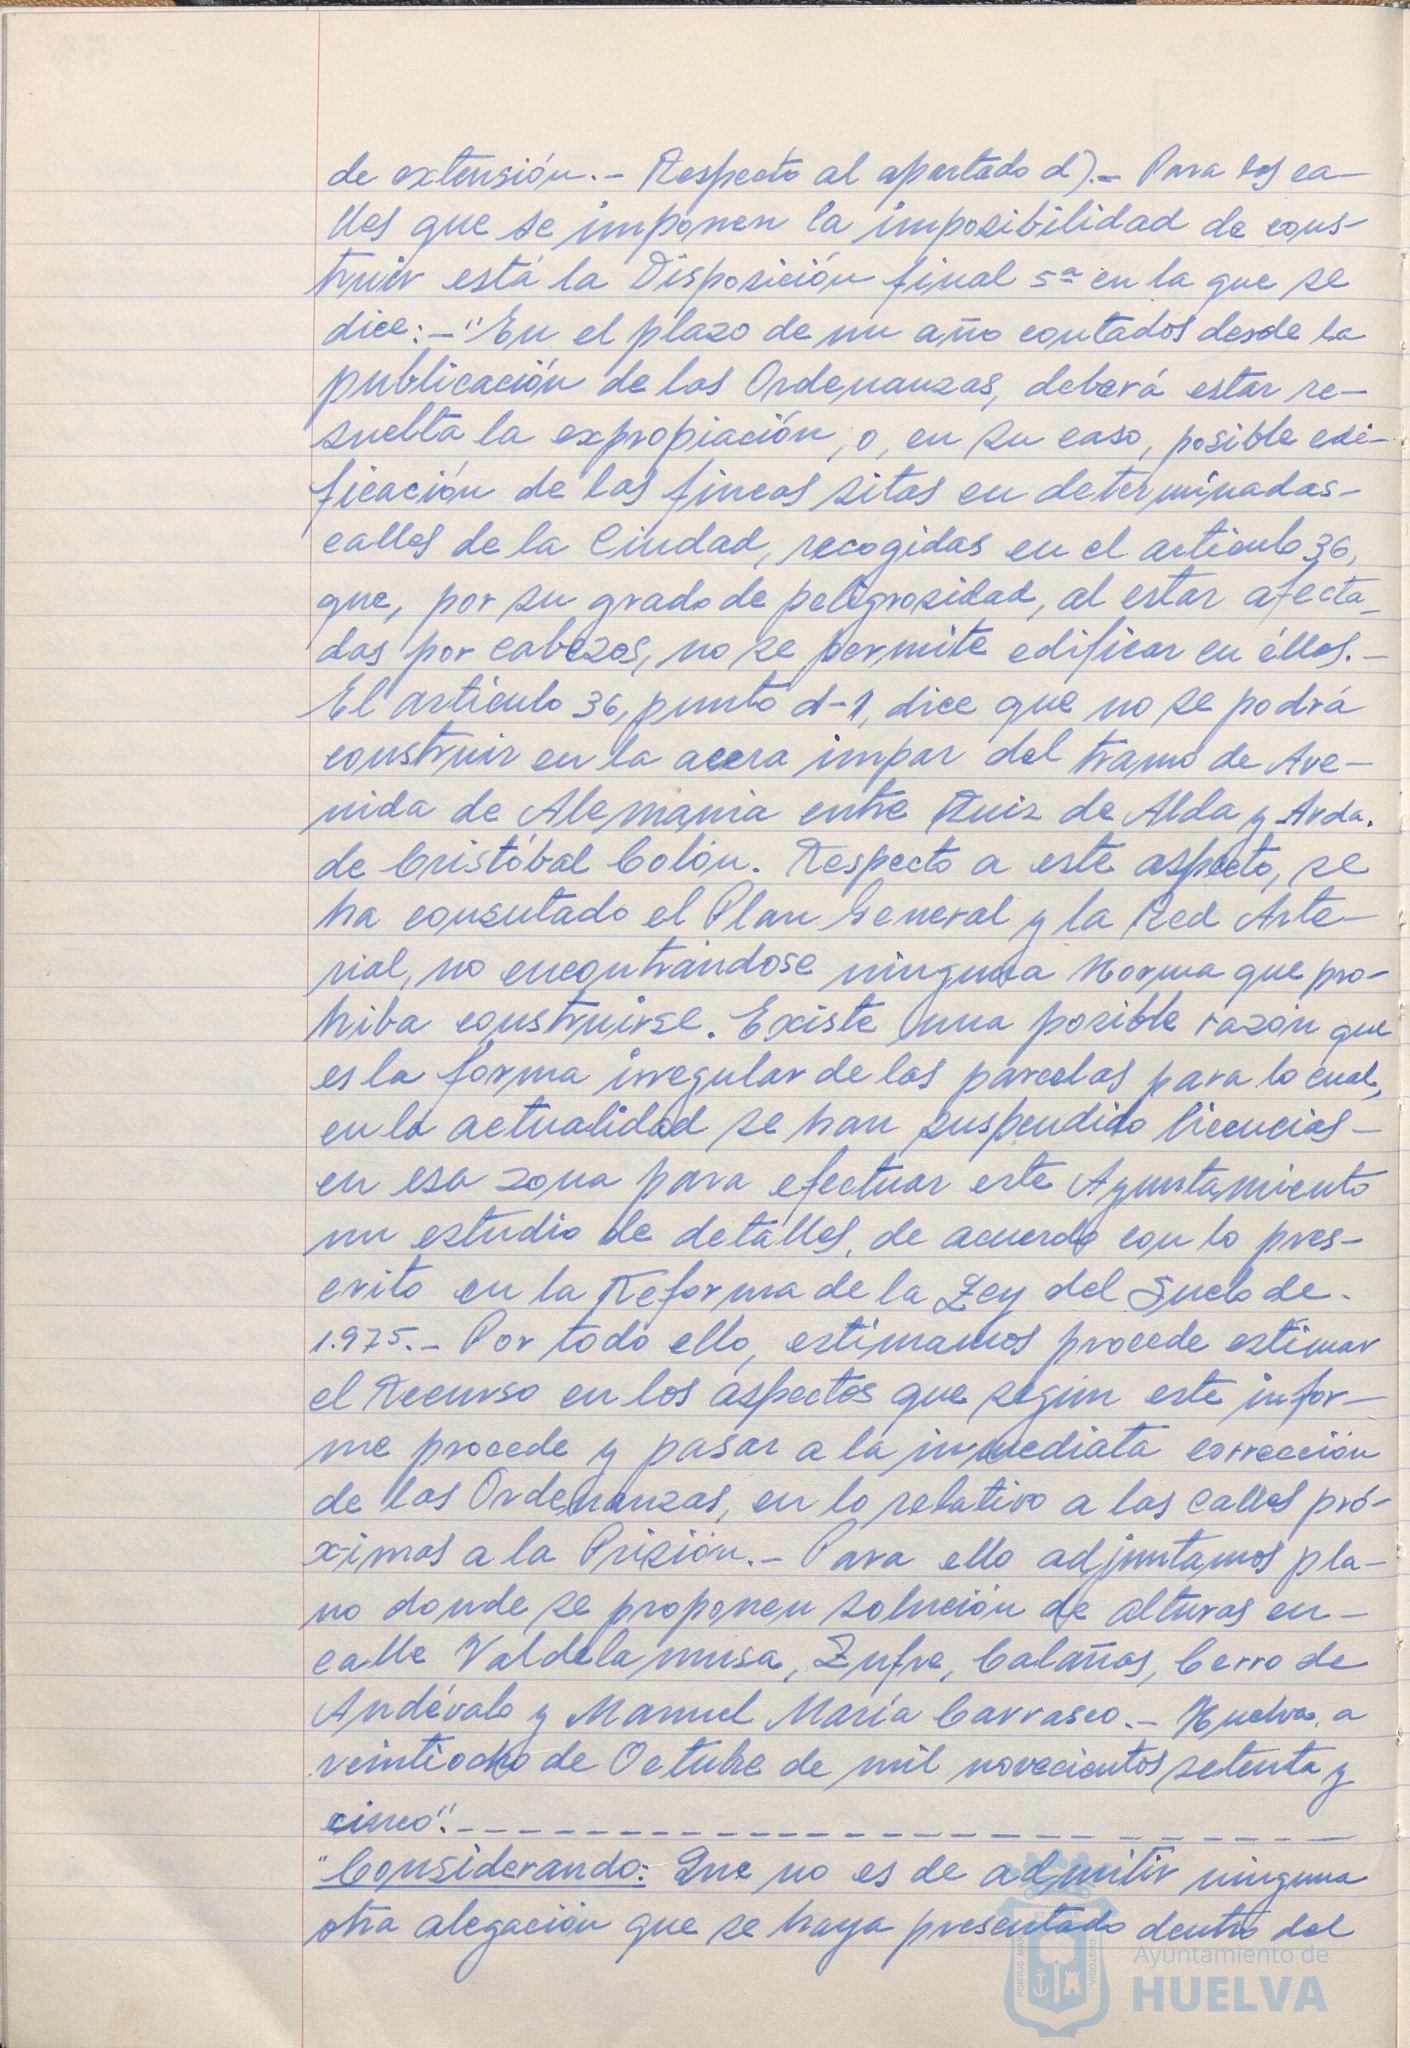 de extensión.- Respecto al apartado d).- Para las ca-
lles que se imponen la imposibilidad de cons-
truir está la Disposición final 5ª en la que se
dice:-"En el plazo de un año contados desde la
publicación de las Ordenanzas, deberá estar re-
suelta la expropiación, o, en su caso, posible edi-
ficación de las fincas sitas en determinadas-
calles de la Ciudad, recogidas en el artículo 36,
que, por su grado de peligrosidad, al estar afecta-
das por cabezos, no se permite edificar en éllas.-
El artículo 36, punto d-1, dice que no se podrá
construir en la acera impar del tramo de Ave-
nida de Alemania entre Ruiz de Alda y Avda.
de Cristóbal Colón. Respecto a este aspecto, se
ha consutado el Plan General y la Red Arte-
rial, no encontrándose ninguna Norma que pro-
hiba construirse. Existe una posible razón que
es la forma irregular de las parcelas para lo cual,
en la actualidad se han suspendido licencias-
en esa zona para efectuar este Ayuntamiento
un estudio de detalles, de acuerdo con lo pres-
crito en la Reforma de la Ley del Suelo de-
1.975.- Por todo ello, estimamos procede estimar
el Recurso en los aspectos que según este infor-
me procede y pasar a la inmediata corrección
de las Ordenanzas, en lo relativo a las calles pró-
ximas a la Prisión.- Para ello adjuntamos pla-
no donde se proponen solución de alturas en-
calle Valdelamusa, Zufre, Calañas, Cerro de
Andévalo y Manuel María Carrasco.- Huelva, a
veintiocho de Octubre de mil novecientos setenta y
cinco".-
"Considerando: Que no es de admitir ninguna
otra alegación que se haya presentado dentro del
Ayuntamiento de
HUELVA